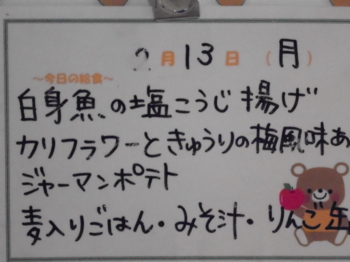 2月13日(月)
～今日の給食～
白身魚の塩こうじ揚げ
カリフラワーときゅうりの梅風味あ
ジャーマンポテト
麦入りごはん・みそ汁・りんご缶